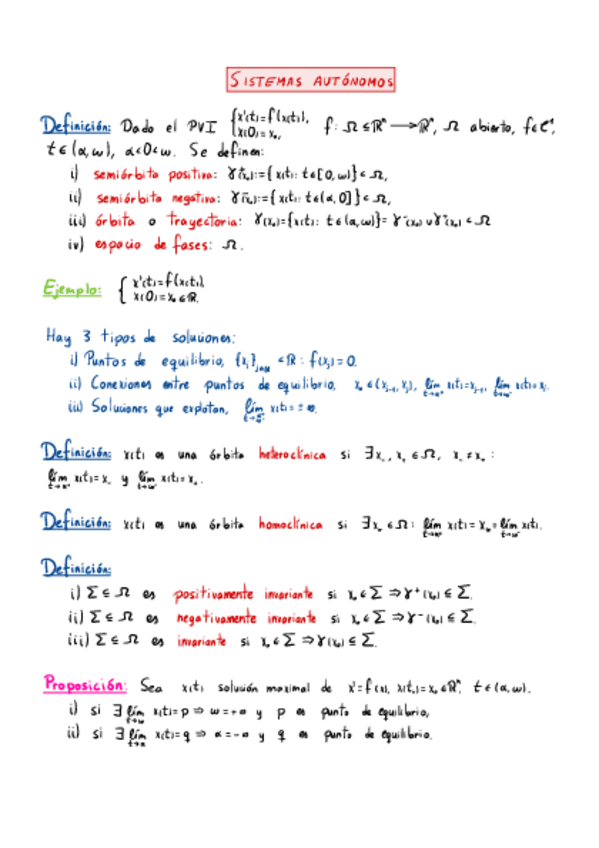 SISTEMAS AUTÓNOMOS
Definición: Dado el PVI { x'(t)=f(x(t)), x(0)=x₀, f: Ω⊆ℝⁿ⟶ℝⁿ, Ω abierto, f∈C¹,
t∈(α,ω), α<0<ω. Se definen:
i) semiórbita positiva: γ⁺(x₀):={x(t): t∈[0,ω)}⊂Ω,
ii) semiórbita negativa: γ⁻(x₀):={x(t): t∈(α,0]}⊂Ω,
iii) órbita o trayectoria: γ(x₀)={x(t): t∈(α,ω)}=γ⁻(x₀)∪γ⁺(x₀)⊂Ω
iv) espacio de fases: Ω.
Ejemplo: { x'(t)=f(x(t)),
x(0)=x₀∈ℝ.
Hay 3 tipos de soluciones:
i) Puntos de equilibrio, {xⱼ} ⊂ℝ: f(xⱼ)=0.
ii) Conexiones entre puntos de equilibrio, x₀∈(xⱼ₋₁,xⱼ), lím x(t)=xⱼ₋₁, lím x(t)=xⱼ.
iii) Soluciones que explotan, lím x(t)=±∞.
Definición: x(t) es una órbita heteroclínica si ∃x₋,x₊∈Ω, x₋≠x₊:
lím x(t)=x₋ y lím x(t)=x₊.
Definición: x(t) es una órbita homoclínica si ∃x∞∈Ω: lím x(t)=x∞=lím x(t).
Definición:
i) Σ⊆Ω es positivamente invariante si x₀∈Σ⇒γ⁺(x₀)⊆Σ.
ii) Σ⊆Ω es negativamente invariante si x₀∈Σ⇒γ⁻(x₀)⊆Σ.
iii) Σ⊆Ω es invariante si x₀∈Σ⇒γ(x₀)⊆Σ.
Proposición: Sea x(t) solución maximal de x'=f(x), x(t₀)=x₀∈ℝⁿ, t∈(α,ω).
i) si ∃ lím x(t)=p⇒ω=+∞ y p es punto de equilibrio,
t→ω
ii) si ∃ lím x(t)=q⇒α=-∞ y q es punto de equilibrio.
t→α